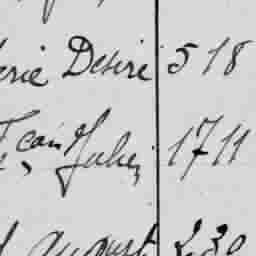 erie Desiré 518
Jules 1711
August 230